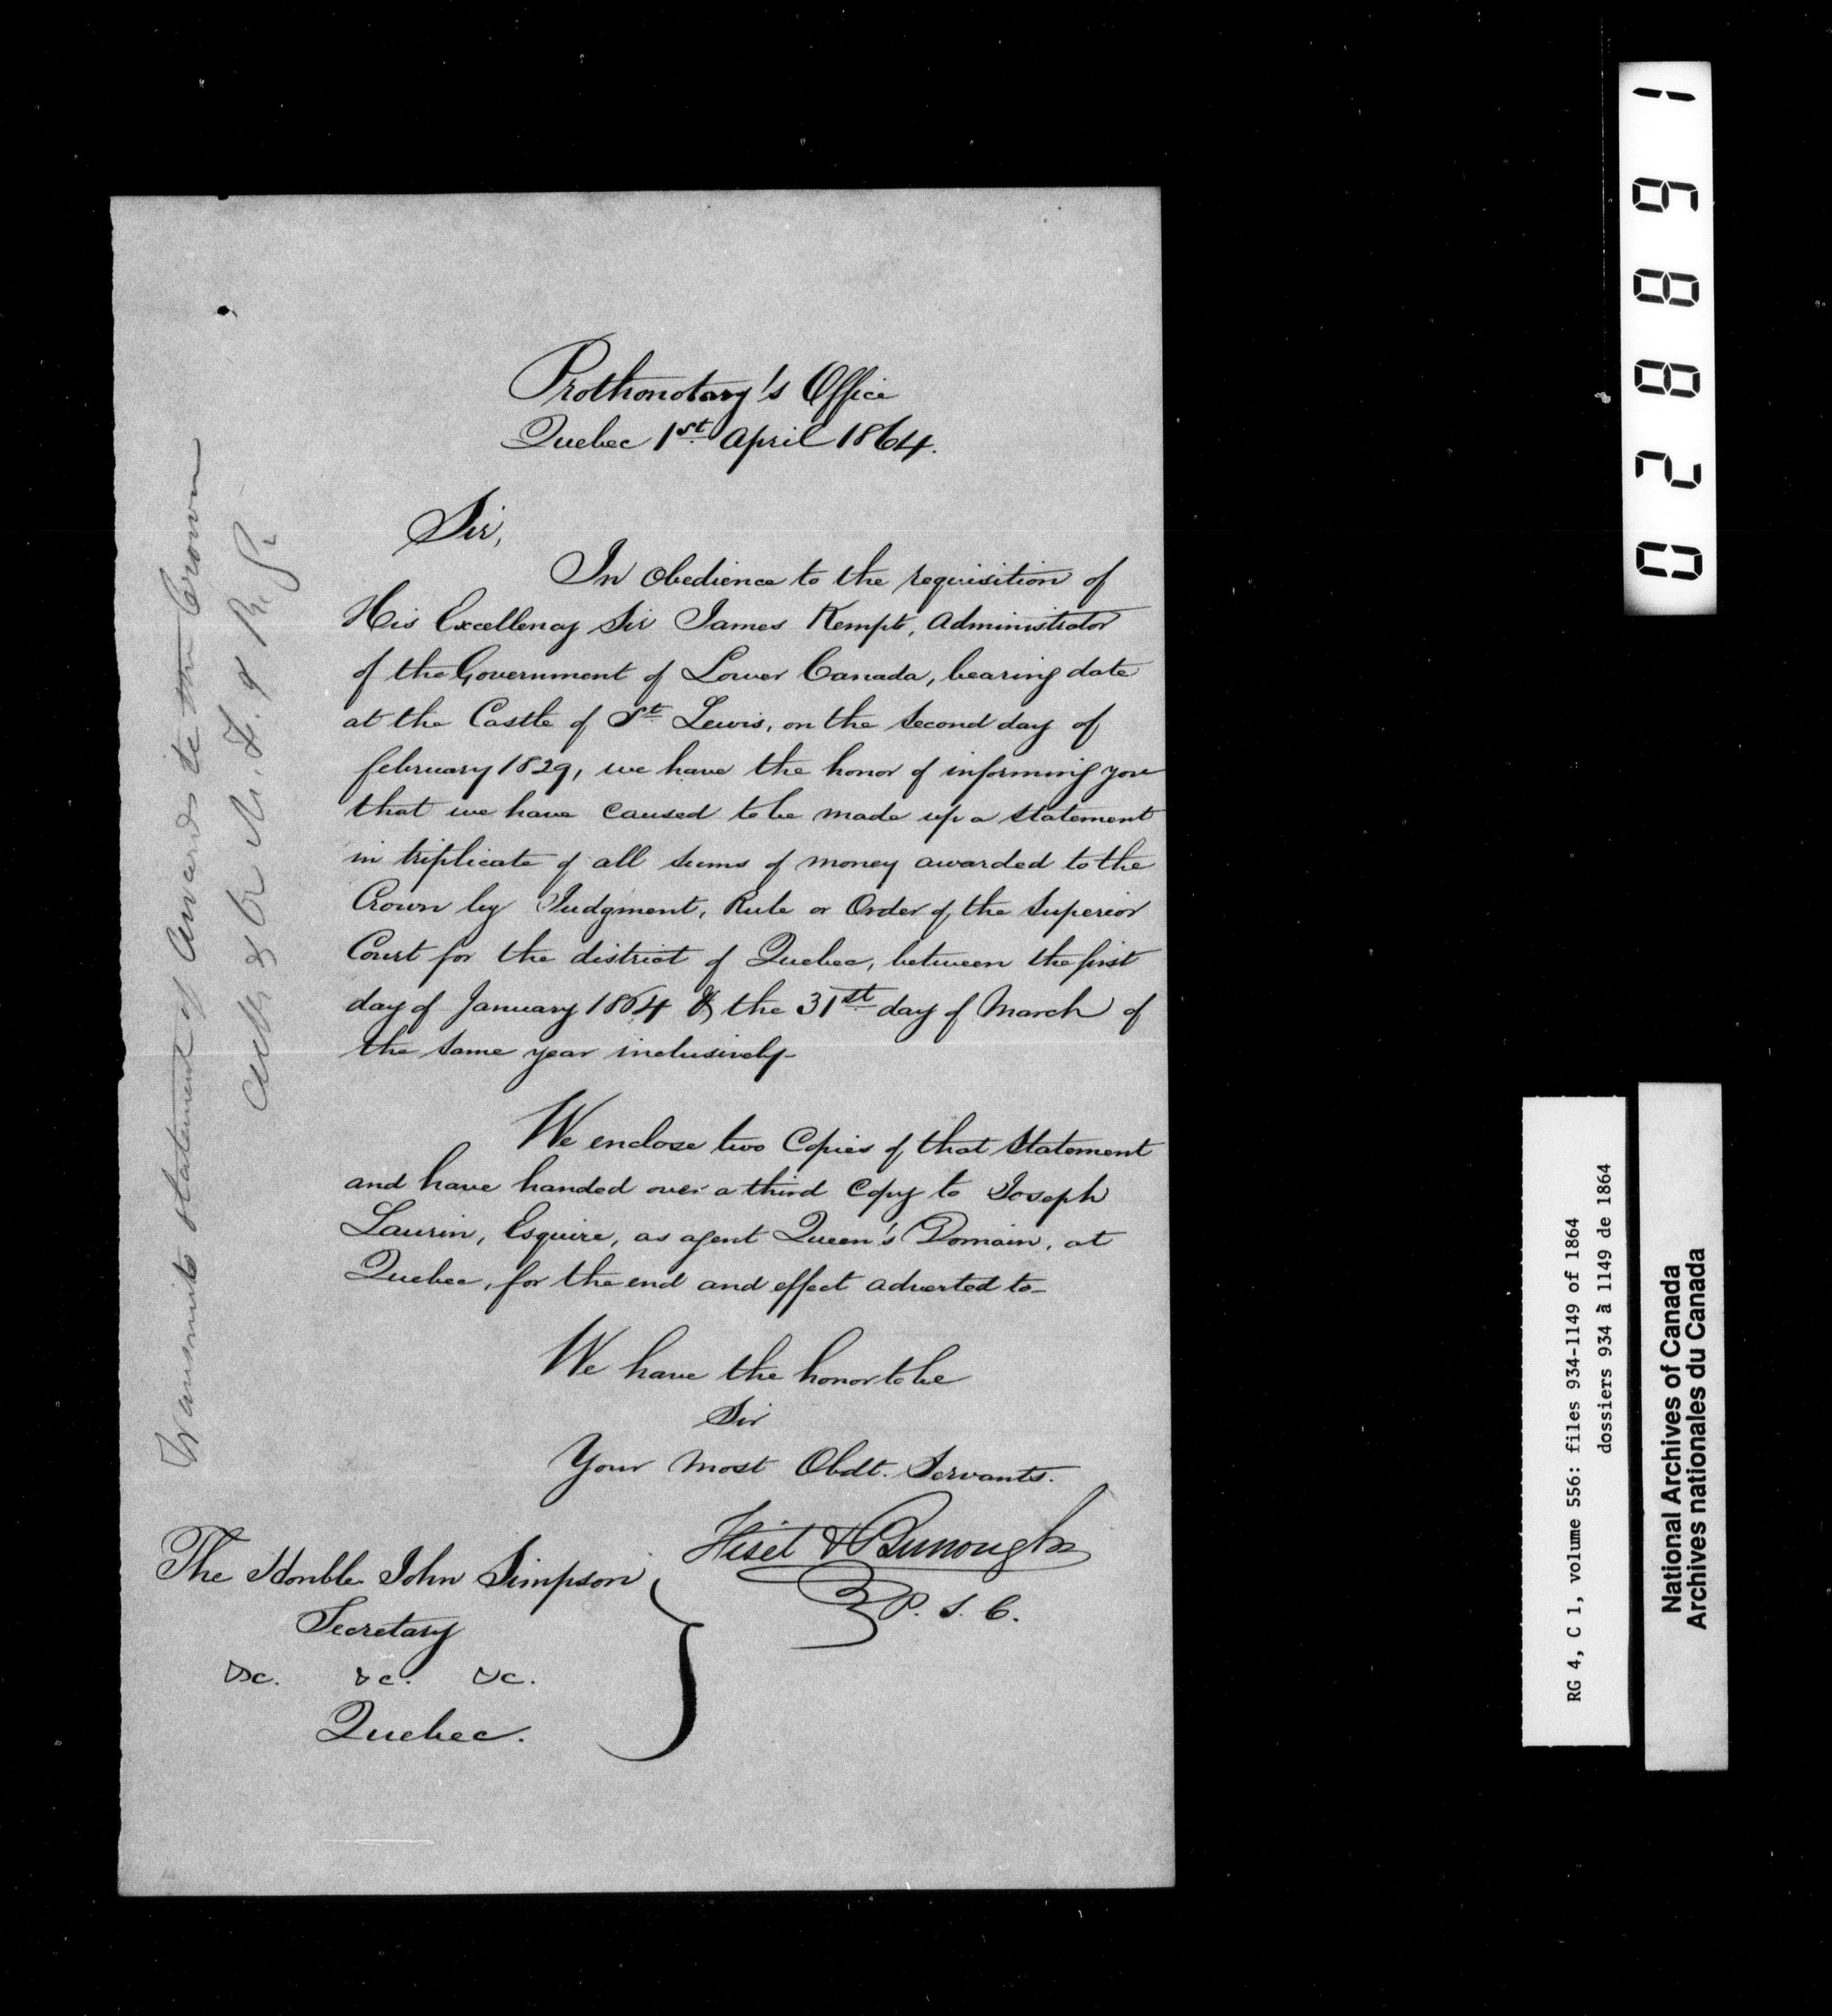 Prothonotary's Office
Quebec 1st April 1864.
Sir,
In obedience to the requisition of
His Excellency Sir James Kempt, Administrator
of the Government of Lower Canada, bearing date
at the Castle of St Lewis, on the second day of
february 1829, we have the honor of informing you
that we have caused to be made up a statement
in triplicate of all sums of money awarded to the
Crown by Judgment, Rule or Order of the Superior
Court for the district of Quebec, between the first
day of January 1864 & the 31st day of March of
the same year inclusively-
We enclose two Copies of that Statement
and have handed over a third Copy to Joseph
Laurin, Esquire, as agent Queen's Domain, at
Quebec, for the end and effect adverted to-
We have the honor to be
Sir
Your most Obdt. Servants.
Fiset & Burroughs
P. S. C.
The Honble John Simpson
Secretary
&c. &c. &c.
Quebec.
Transmits statement of Awards to the Crown
028861
RG 4, C 1, volume 556: files 934-1149 of 1864
dossiers 934 à 1149 de 1864
National Archives of Canada
Archives nationales du Canada